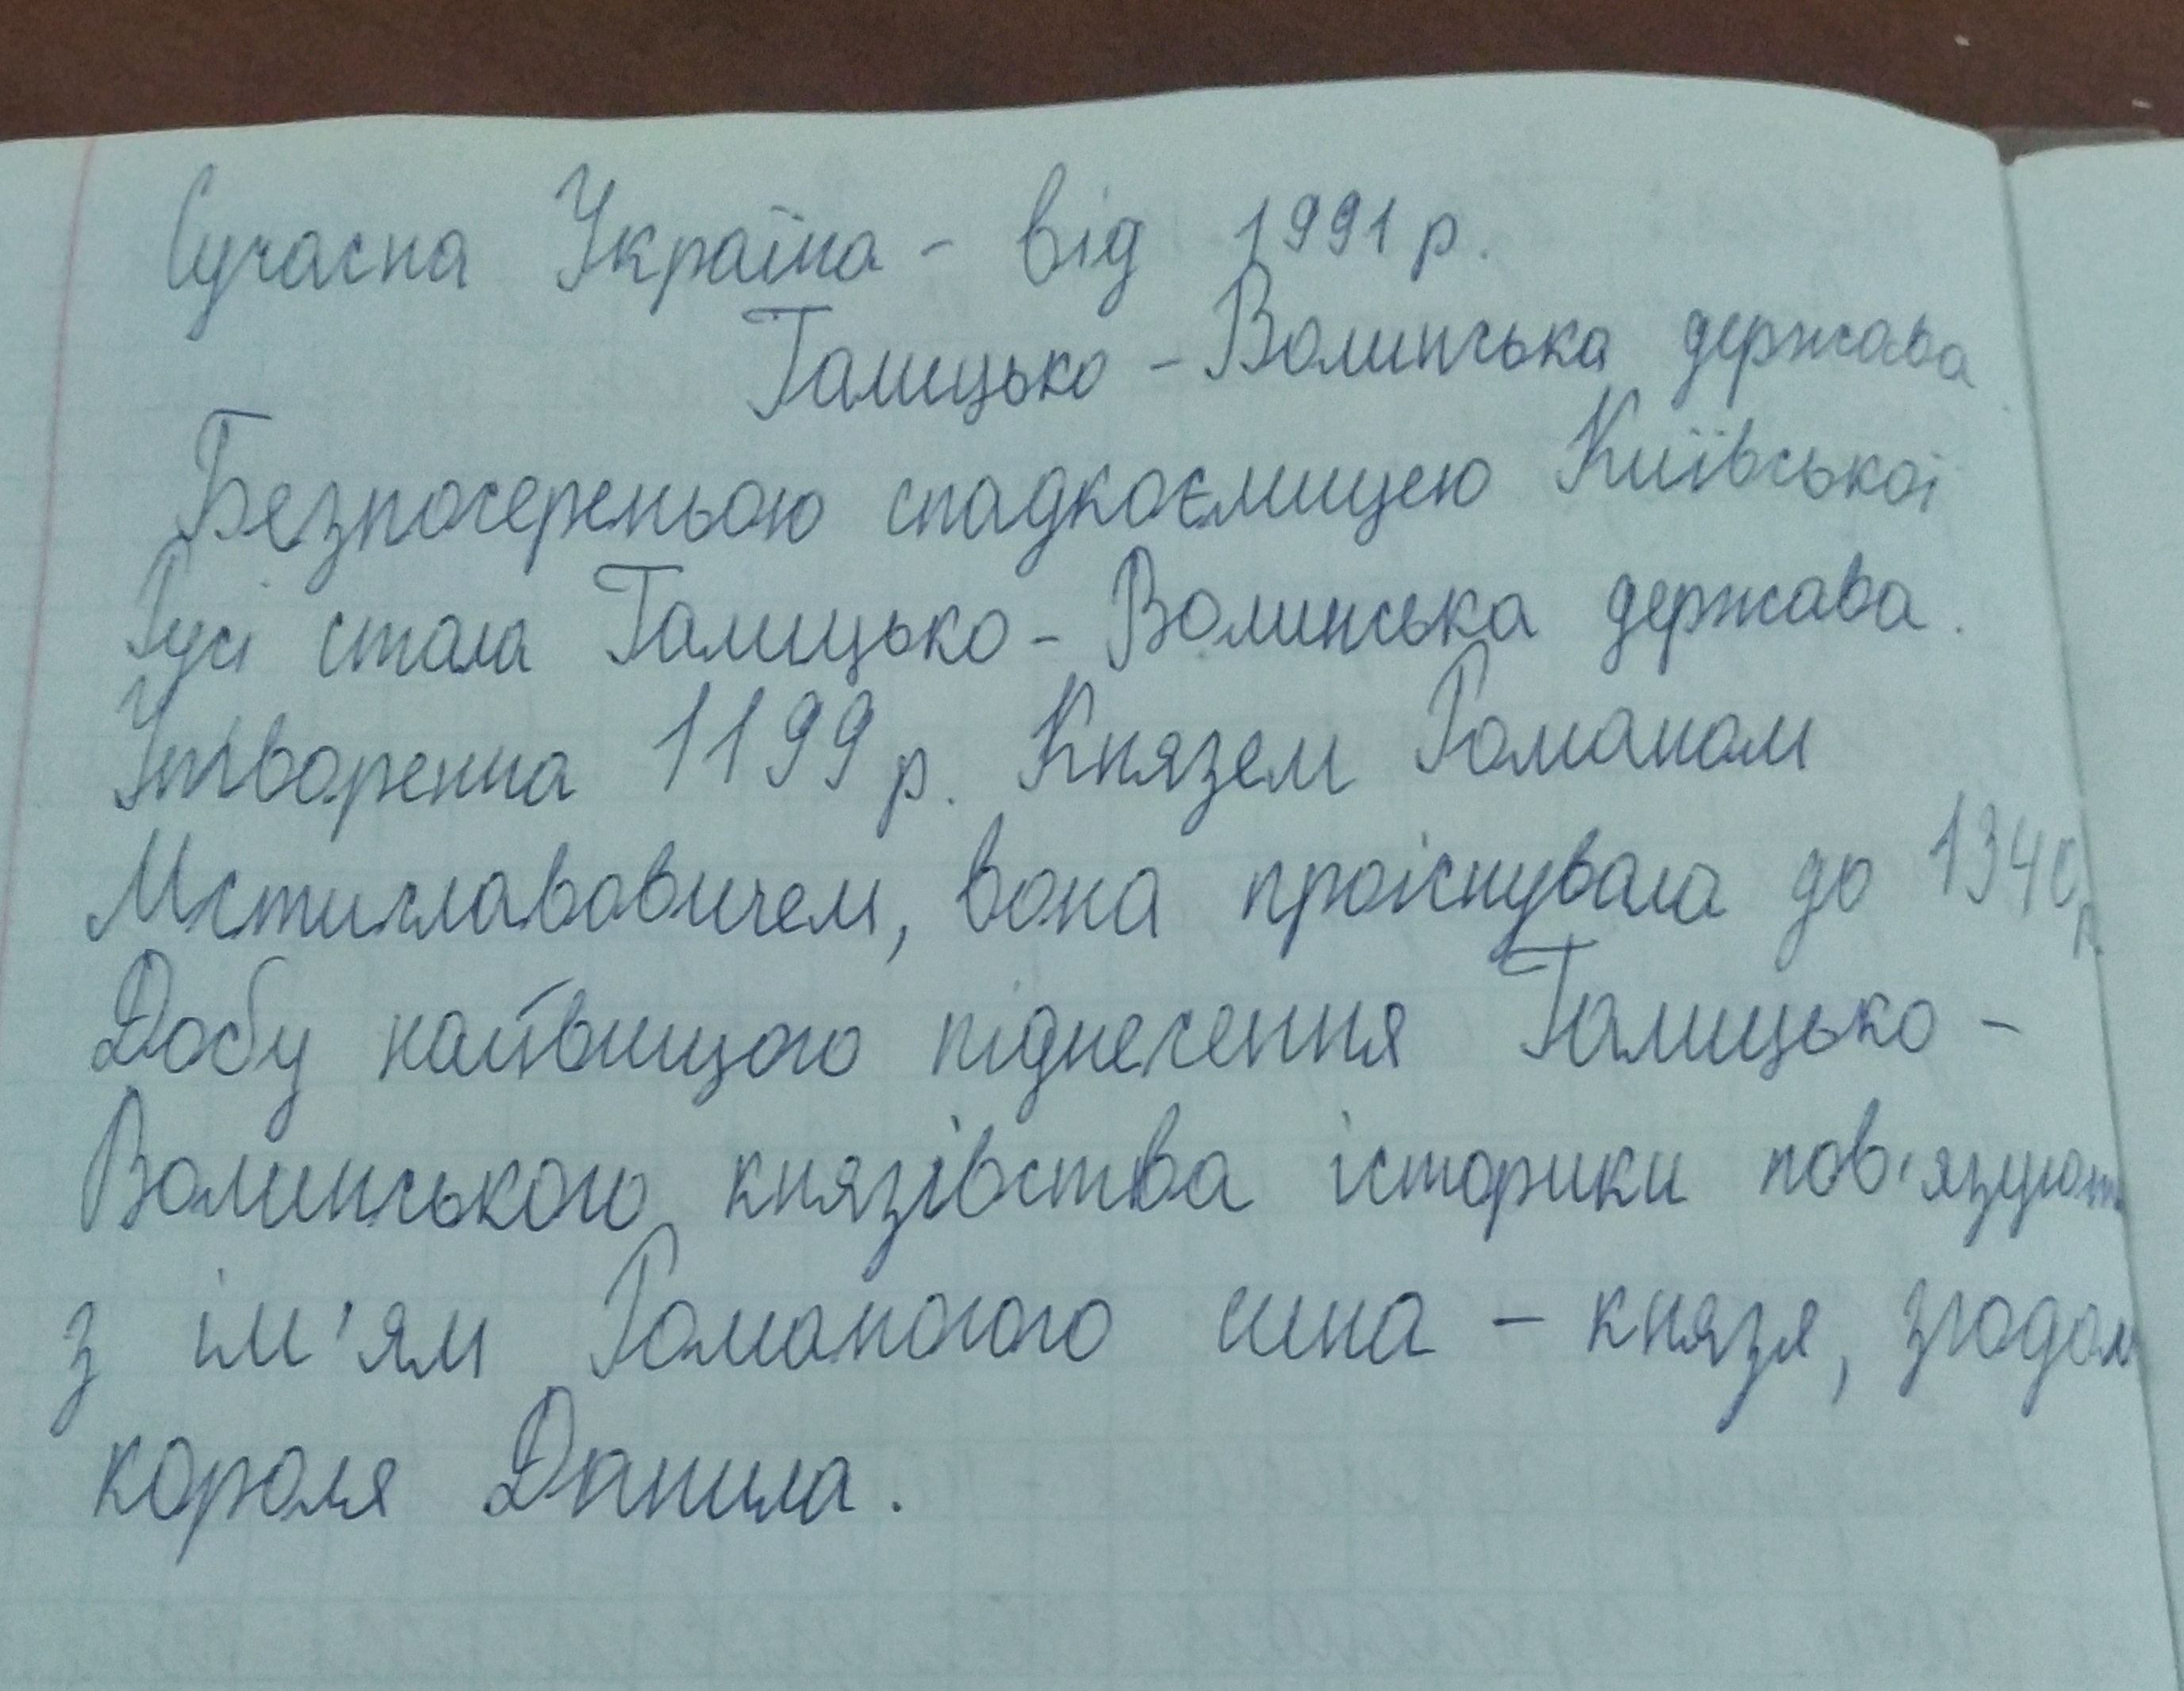 Сучасна Україна - від 1991 р.
Галицько - Волинська держава
Безпосереньою спадкоємицею Київської
Русі стала Галицько - Волинська держава.
Утворенна 1199 р. Князем Романом
Мстиславовичем, вона проіснувала до 1340 р.
Добу найвищого піднесення Галицько -
Волинського князівства історики пов'язують
з ім'ям Романового сина - князя, згодом
короля Данила.